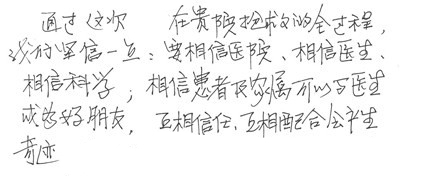 通过这次 在贵院抢救的全过程,
我们坚信一点:要相信医院、相信医生、
相信科学;相信患者及家属可以与医生
成为好朋友,互相信任、互相配合会产生
奇迹